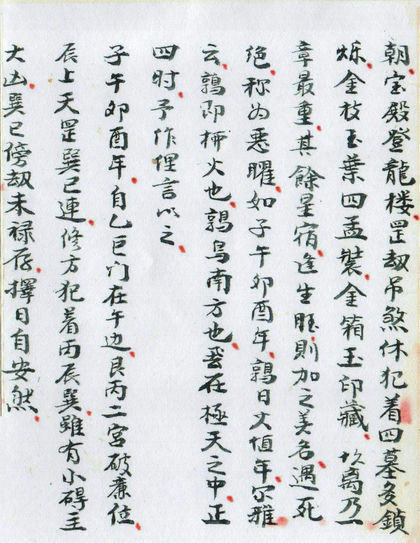 朝宝殿登龍楼罡劫吊煞休犯着四墓多鎖
烁金枝玉葉四孟装金箱玉印藏坎离乃一
章最重其餘星宿逢生旺則加之美名遇死
绝称为恶曜如子午卯酉年鶉日火值年尔雅
云鶉即柳火也鶉鸟南方也在極天之中正
四时予作俚言以之
子午卯酉年自乙巨门在午边艮丙二宫破廉位
辰上天罡巽巳連修方犯着丙辰巽雖有小碍主
大凶巽巳傍劫未禄存擇日自安然